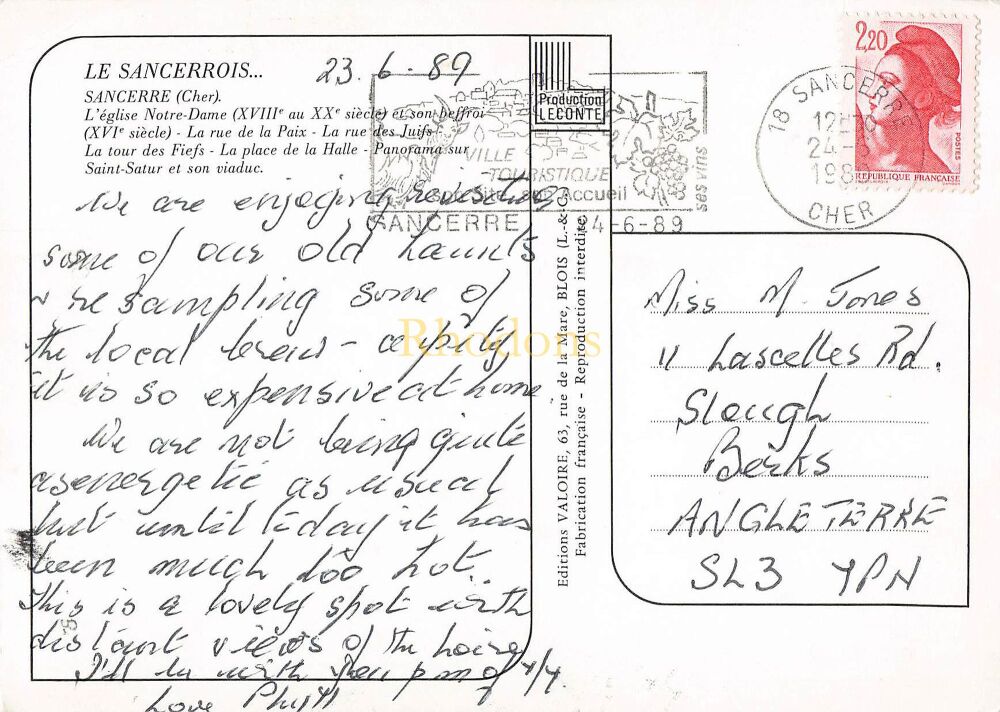 LE SANCERROIS...
23.6.89
SANCERRE (Cher).
L'église Notre-Dame (XVIIIe au XXe siècle) et son beffroi
(XVIe siècle) - La rue de la Paix - La rue des Juifs
La tour des Fiefs - La place de la Halle - Panorama sur
Saint-Satur et son viaduc.
We are enjoying revisiting
some of our old haunts
& re sampling some of
the local brew - a pity
it is so expensive at home
We are not being quite
as energetic as usual
but until today it has
been much too hot.
This is a lovely spot with
distant views of the Loire
I'll be with you pm of
Love
Production
LECONTE
VILLE
TOURISTIQUE
son Site son Accueil
ses vins
SANCERRE
4-6-89
Editions VALOIRE, 63, rue de la Mare, BLOIS (L.-&-C.)
Fabrication française - Reproduction interdite
18 SANCERRE
24-
198
CHER
2,20
POSTES
REPUBLIQUE FRANÇAISE
Rhodons
Miss M. Jones
11 Lascelles Rd.
Slough
Berks
ANGLETERRE
SL3 7PN